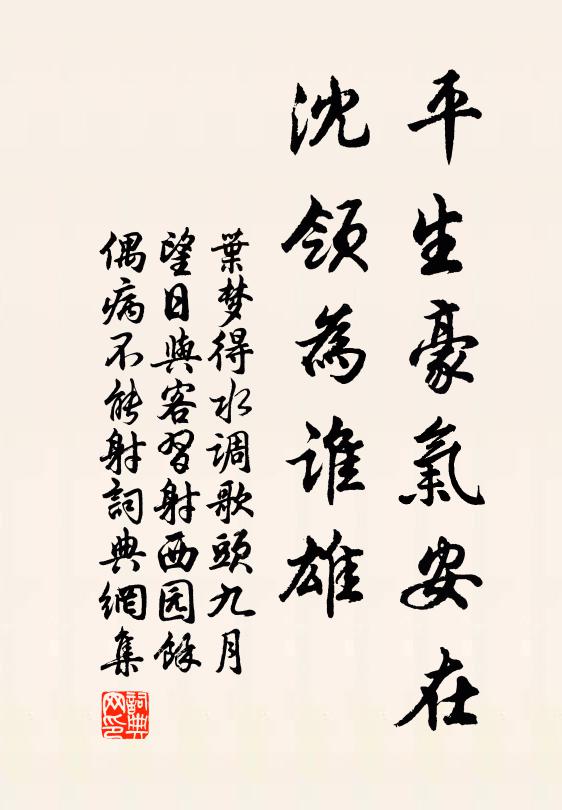 平生豪氣安在
沈領為誰雄
葉梦得水调歌頭九月
望日與客習射西园餘
偶病不能射詞典網集
詞典
网印